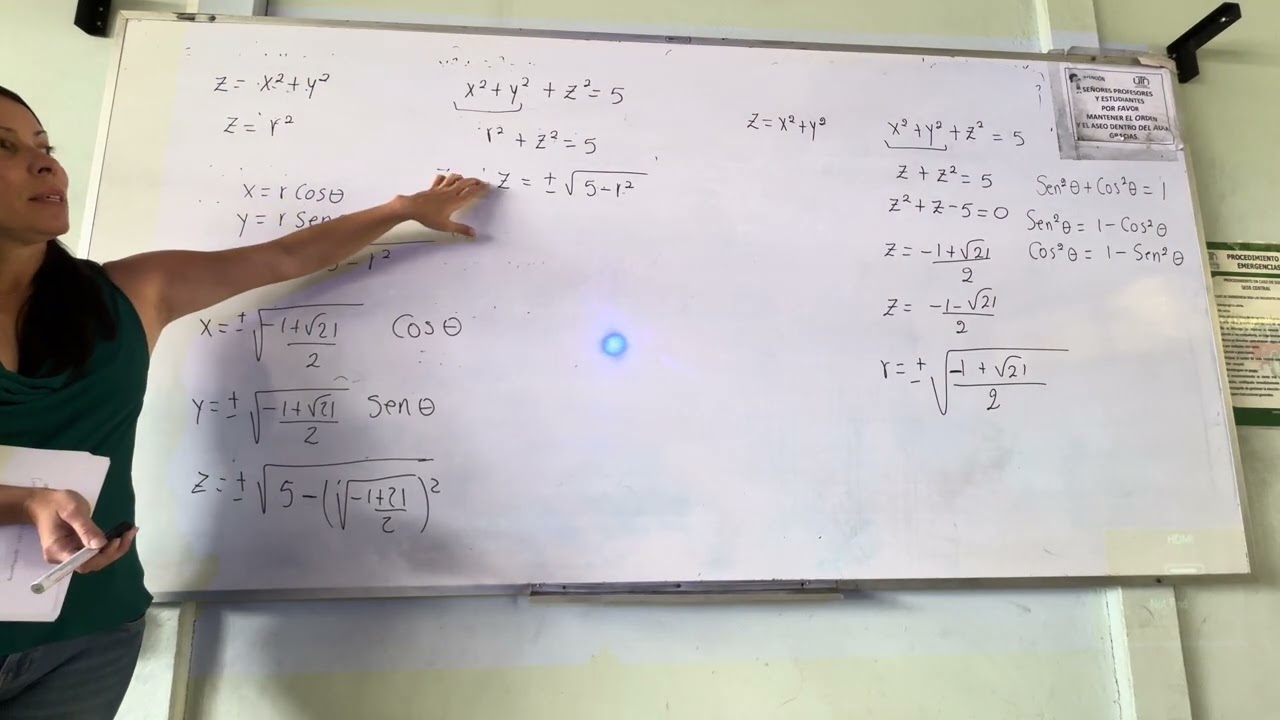 z = x² + y²
z = r²
x = r Cosθ
y = r Sen
5 − r²
x = ± √((−1+√21)/2) Cos θ
y = ± √((−1+√21)/2) Sen θ
z = ± √(5 − (√((−1+21)/2))²)
x² + y² + z² = 5
r² + z² = 5
z = ± √(5 − r²)
z = x² + y²
x² + y² + z² = 5
z + z² = 5
z² + z − 5 = 0
z = (−1+√21)/2
z = (−1−√21)/2
r = ± √((−1+√21)/2)
Sen²θ + Cos²θ = 1
Sen²θ = 1 − Cos²θ
Cos²θ = 1 − Sen²θ
SEÑORES PROFESORES
Y ESTUDIANTES
POR FAVOR
MANTENER EL ORDEN
Y EL ASEO DENTRO DEL AULA
GRACIAS.
PROCEDIMIENTO
EMERGENCIAS
HDMI